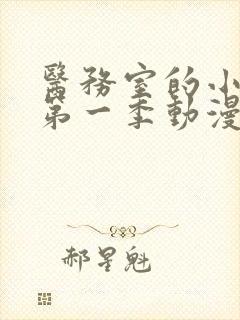 醫務室的小
第一季動漫
郝星魁